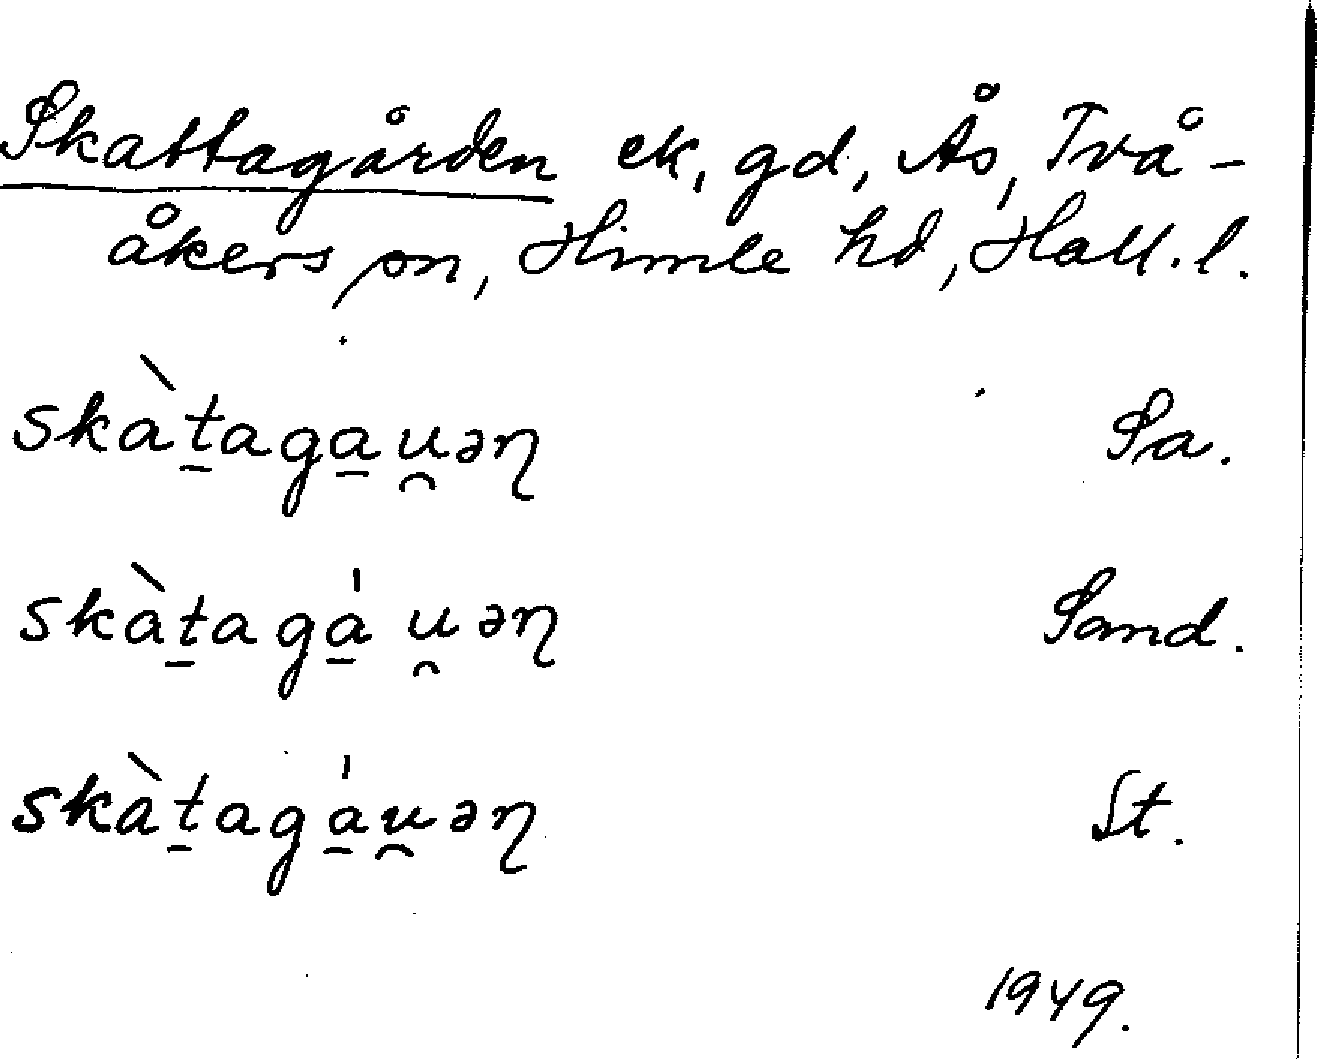 Skattagården ek, gd, Ås, Två-
åkers sn, Himle hd, Hall. l.
skàt̠aga̠u̯əɳ Sa.
skàt̠agá̠u̯əɳ Sand.
skàt̠agá̠u̯əɳ St.
1949.